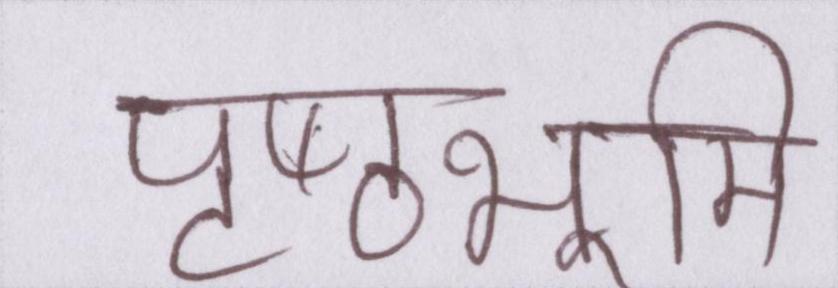 पृष्ठभूमि